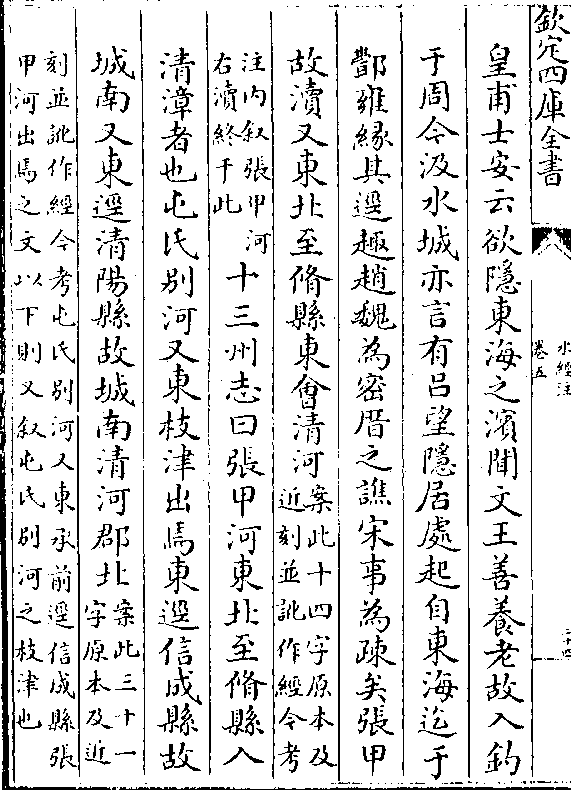 欽定四庫全書
水經注
卷五
二十四
皇甫士安云欲隱東海之濱聞文王善養老故入釣
于周今汲水城亦言有呂望隱居處起自東海迄于
酆雍緣其逕趣趙魏為密厝之譙宋事為疎矣張甲
故瀆又東北至脩縣東會清河案此十四字原本及
近刻並訛作經今考
注内叙張甲河
右瀆終于此十三州志曰張甲河東北至脩縣入
清漳者也屯氏别河又東枝津出焉東逕信成縣故
城南又東逕清陽縣故城南清河郡北案此三十一
字原本及近
刻並訛作經今考屯氏别河又東承前逕信成縣張
甲河出焉之文以下則又叙屯氏别河之枝津也